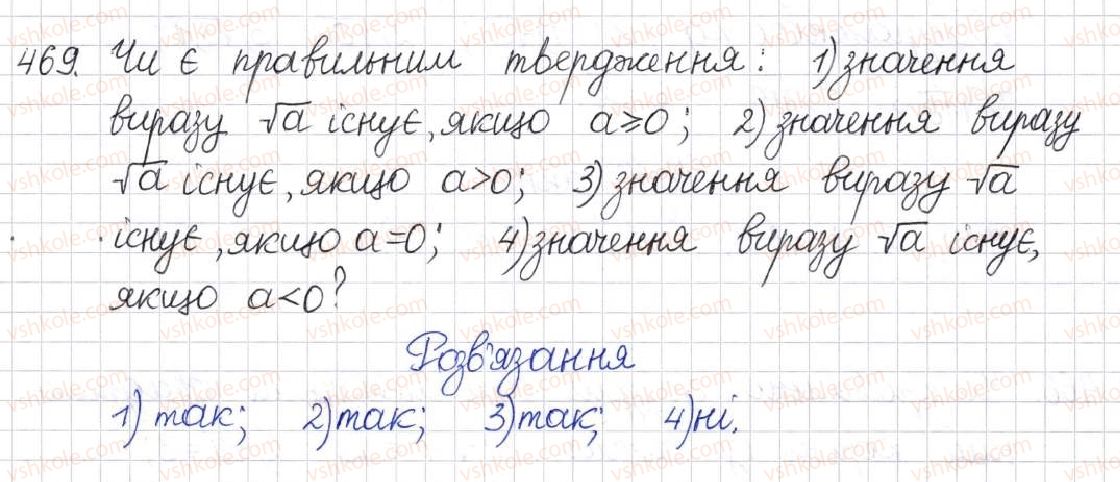 469. Чи є правильним твердження: 1) значення
виразу √a існує, якщо a≥0; 2) значення виразу
√a існує, якщо a>0; 3) значення виразу √a
існує, якщо a=0; 4) значення виразу √a існує,
якщо a<0?
Розв'язання
1) так; 2) так; 3) так; 4) ні.
vshkole.com